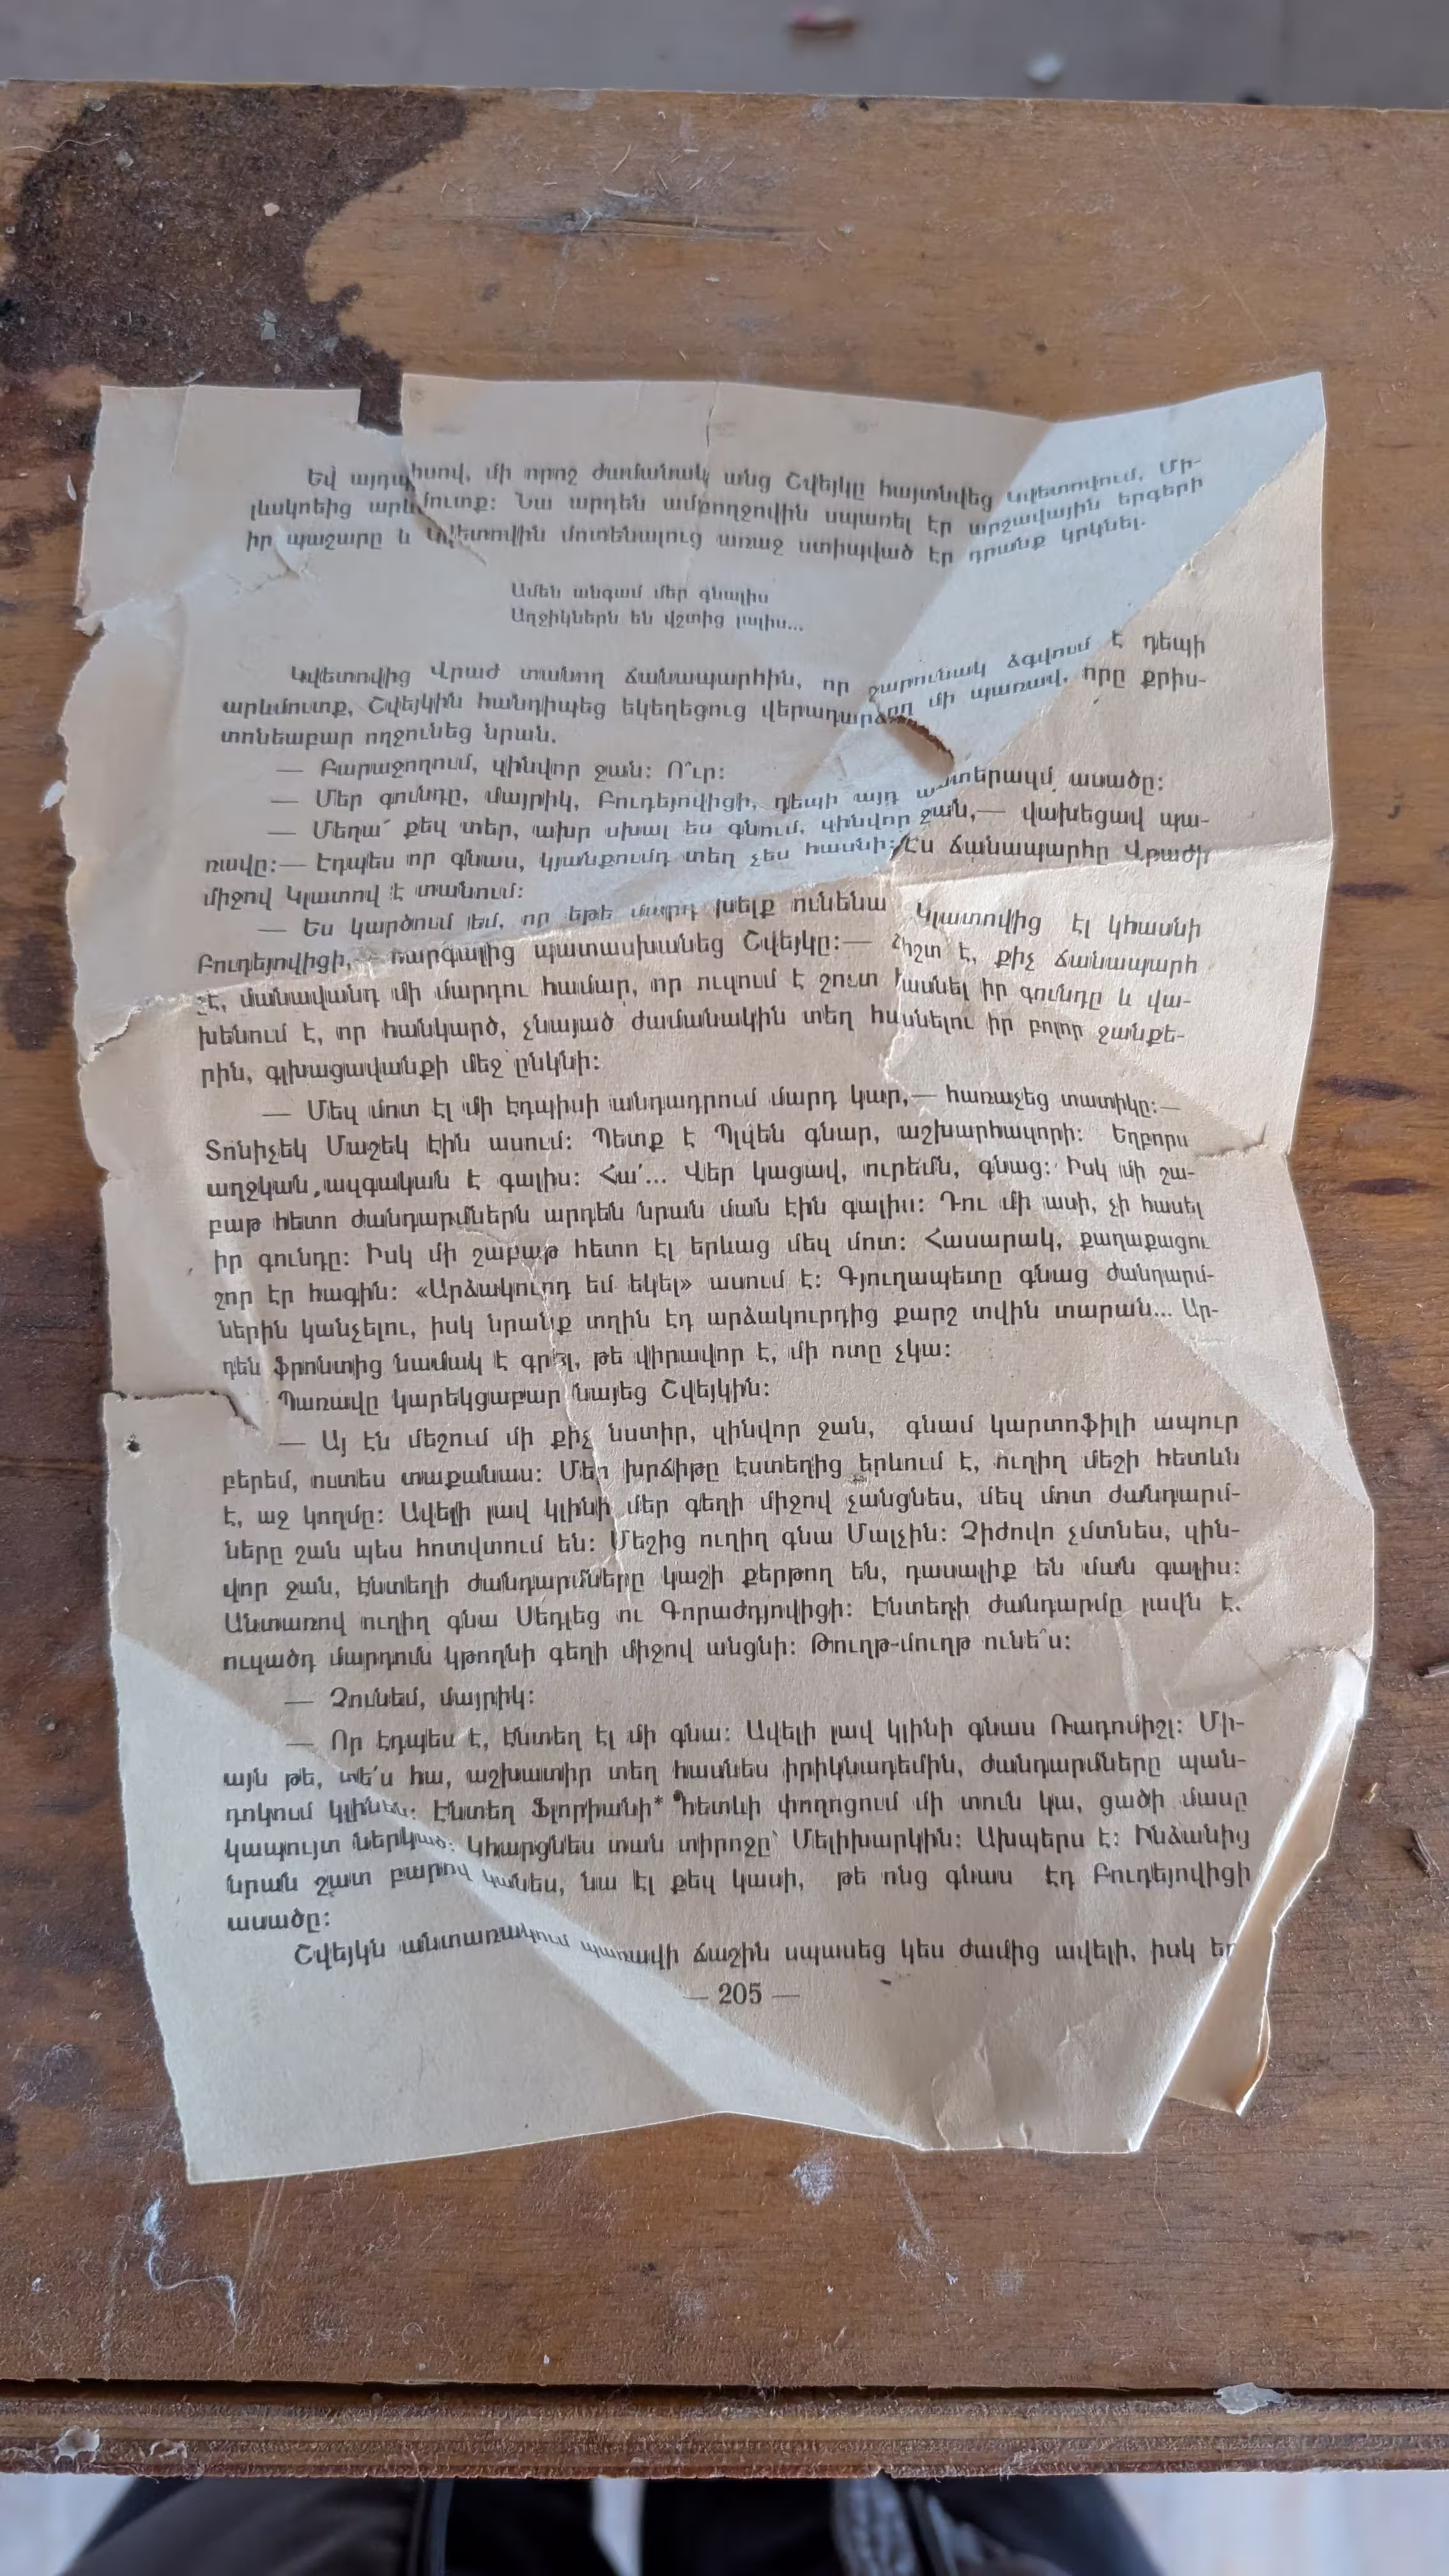 Եվ այդպիսով, մի որոշ ժամանակ անց Շվեյկը հայտնվեց Կվետովում, Մի-
լևսկոեից արևմուտք: Նա արդեն ամբողջովին սպառել էր արշավային երգերի
իր պաշարը և Կվետովին մոտենալուց առաջ ստիպված էր դրանք կրկնել.
Ամեն անգամ մեր գնալիս
Աղջիկներն են վշտից լալիս...
Կվետովից Վրաժ տանող ճանապարհին, որ շարունակ ձգվում է դեպի
արևմուտք, Շվեյկին հանդիպեց եկեղեցուց վերադարձող մի պառավ, որը քրիս-
տոնեաբար ողջունեց նրան.
— Բարաջողում, զինվոր ջան: Ո՞ւր:
— Մեր գունդը, մայրիկ, Բուդեյովիցի, դեպի այդ պատերազմ ասածը:
— Մեղա՜ քեզ տեր, ախր սխալ ես գնում, զինվոր ջան,— վախեցավ պա-
ռավը:— Էդպես որ գնաս, կյանքումդ տեղ չես հասնի: Էս ճանապարհը Վրաժի
միջով Կլատով է տանում:
— Ես կարծում եմ, որ եթե մարդ խելք ունենա Կլատովից էլ կհասնի
Բուդեյովիցի,— հարգալից պատասխանեց Շվեյկը:— Ճիշտ է, քիչ ճանապարհ
չէ, մանավանդ մի մարդու համար, որ ուզում է շուտ հասնել իր գունդը և վա-
խենում է, որ հանկարծ, չնայած ժամանակին տեղ հասնելու իր բոլոր ջանքե-
րին, գլխացավանքի մեջ ընկնի:
— Մեզ մոտ էլ մի էդպիսի անդադրում մարդ կար,— հառաչեց տատիկը:—
Տոնիչեկ Մաշեկ էին ասում: Պետք է Պլվեն գնար, աշխարհազորի: Եղբորս
աղջկան ազգական է գալիս: Հա՛... Վեր կացավ, ուրեմն, գնաց: Իսկ մի շա-
բաթ հետո ժանդարմներն արդեն նրան ման էին գալիս: Դու մի ասի, չի հասել
իր գունդը: Իսկ մի շաբաթ հետո էլ երևաց մեզ մոտ: Հասարակ, քաղաքացու
շոր էր հագին: «Արձակուրդ եմ եկել» ասում է: Գյուղապետը գնաց ժանդարմ-
ներին կանչելու, իսկ նրանք տղին էդ արձակուրդից քարշ տվին տարան... Ար-
դեն ֆրոնտից նամակ է գրել, թե վիրավոր է, մի ոտը չկա:
Պառավը կարեկցաբար նայեց Շվեյկին:
— Այ էն մեշում մի քիչ նստիր, զինվոր ջան, գնամ կարտոֆիլի ապուր
բերեմ, ուտես տաքանաս: Մեր խրճիթը էստեղից երևում է, ուղիղ մեշի հետևն
է, աջ կողմը: Ավելի լավ կլինի մեր գեղի միջով չանցնես, մեզ մոտ ժանդարմ-
ները շան պես հոտվտում են: Մեշից ուղիղ գնա Մալչին: Չիժովո չմտնես, զին-
վոր ջան, էնտեղի ժանդարմները կաշի քերթող են, դասալիք են ման գալիս:
Անտառով ուղիղ գնա Սեդլեց ու Գորաժդյովիցի: Էնտեղի ժանդարմը լավն է.
ուզածդ մարդուն կթողնի գեղի միջով անցնի: Թուղթ-մուղթ ունե՞ս:
— Չունեմ, մայրիկ:
— Որ էդպես է, էնտեղ էլ մի գնա: Ավելի լավ կլինի գնաս Ռադոմիշլ: Մի-
այն թե, տե՛ս հա, աշխատիր տեղ հասնես իրիկնադեմին, ժանդարմները պան-
դոկում կլինեն: Էնտեղ Ֆլորիանի* հետևի փողոցում մի տուն կա, ցածի մասը
կապույտ ներկած: Կհարցնես տան տիրոջը՝ Մելիխարկին: Ախպերս է: Ինձանից
նրան շատ բարով կանես, նա էլ քեզ կասի, թե ոնց գնաս էդ Բուդեյովիցի
ասածը:
Շվեյկն անտառակում պառավի ճաշին սպասեց կես ժամից ավելի, իսկ եր
— 205 —